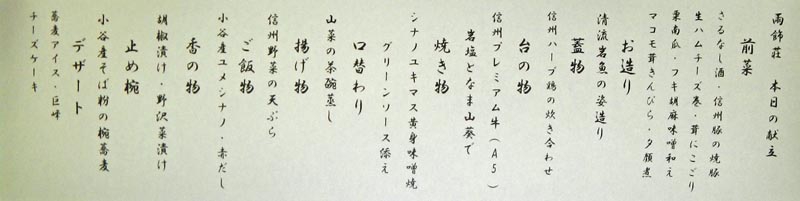 雨飾荘 本日の献立
前菜
さるなし酒・信州豚の焼豚
生ハムチーズ巻・茸にこごり
栗南瓜・フキ胡麻味噌和え
マコモ茸きんぴら・夕顔煮
お造り
清流岩魚の姿造り
蓋物
信州ハーブ鶏の炊き合わせ
台の物
信州プレミアム牛(A5)
岩塩となま山葵で
焼き物
シナノユキマス黄身味噌焼
グリーンソース添え
口替わり
山菜の茶碗蒸し
揚げ物
信州野菜の天ぷら
ご飯物
小谷産ユメシナノ・赤だし
香の物
胡椒漬け・野沢菜漬け
止め椀
小谷産そば粉の椀蕎麦
デザート
蕎麦アイス・巨峰
チーズケーキ